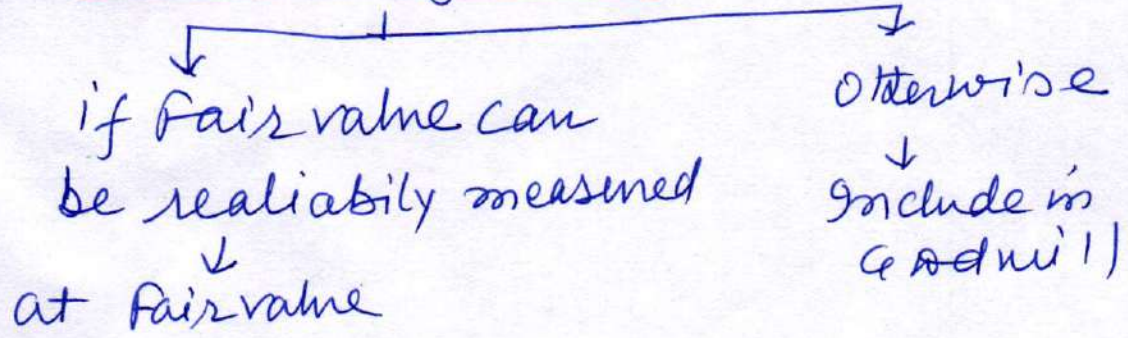 if Fair value can
be realiabily measured
↓
at Fair value
Otherwise
↓
Include in
Goodwill